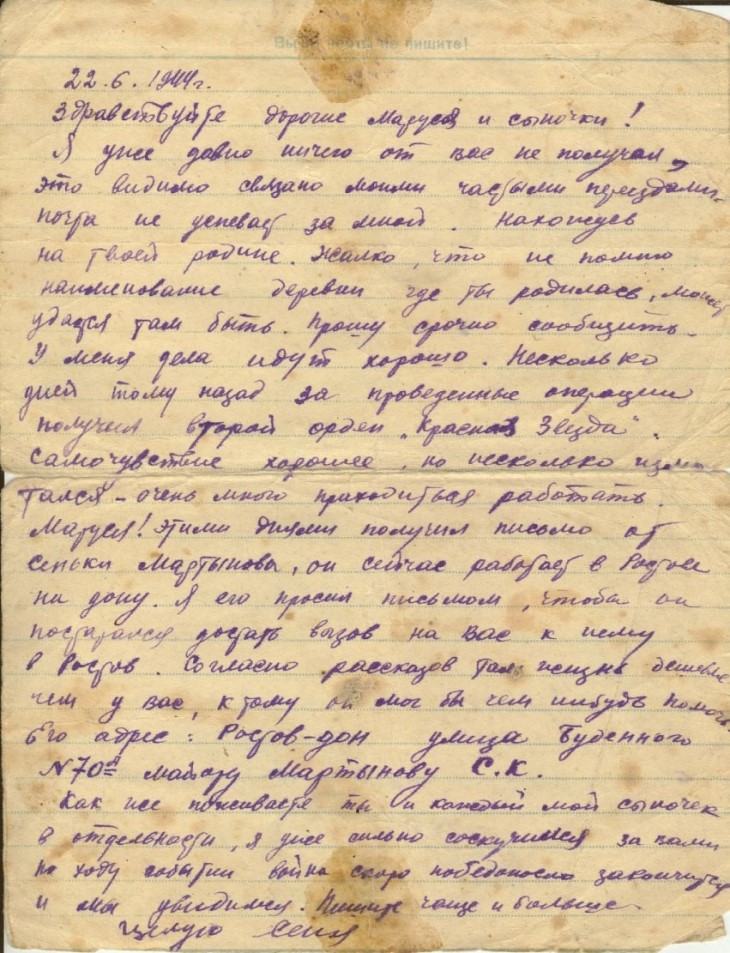 Выше черты не пишите!
22.6.1944г.
Здравствуйте дорогие Маруся и сыночки!
Я уже давно ничего от вас не получал,
это видимо связано моими частыми переездами.
почта не успевает за мной. Нахожусь
на твоей родине. Жалко, что не помню
наименование деревни где ты родилась, может
удастся там быть. Прошу срочно сообщить.
У меня дела идут хорошо. Несколько
дней тому назад за проведенные операции
получил второй орден „Красная Звезда".
Самочувствие хорошее, но несколько измо
тался – очень много приходиться работать.
Маруся! этими днями получил письмо от
Сеньки Мартынова, он сейчас работает в Ростове
на дону. Я его просил письмом, чтобы он
постарался достать вызов на вас к нему
в Ростов. Согласно рассказов там жизнь дешевле
чем у вас, к тому он мог бы чем нибудь помочь.
Его адрес: Ростов-дон улица Буденного
N 70а майору Мартынову С.К.
Как же поживаете ты и каждый мой сыночек
в отдельности, я уже сильно соскучился за вами
по ходу событий война скоро победоносно закончится
и мы увидимся. Пишите чаще и больше.
Целую Сеня